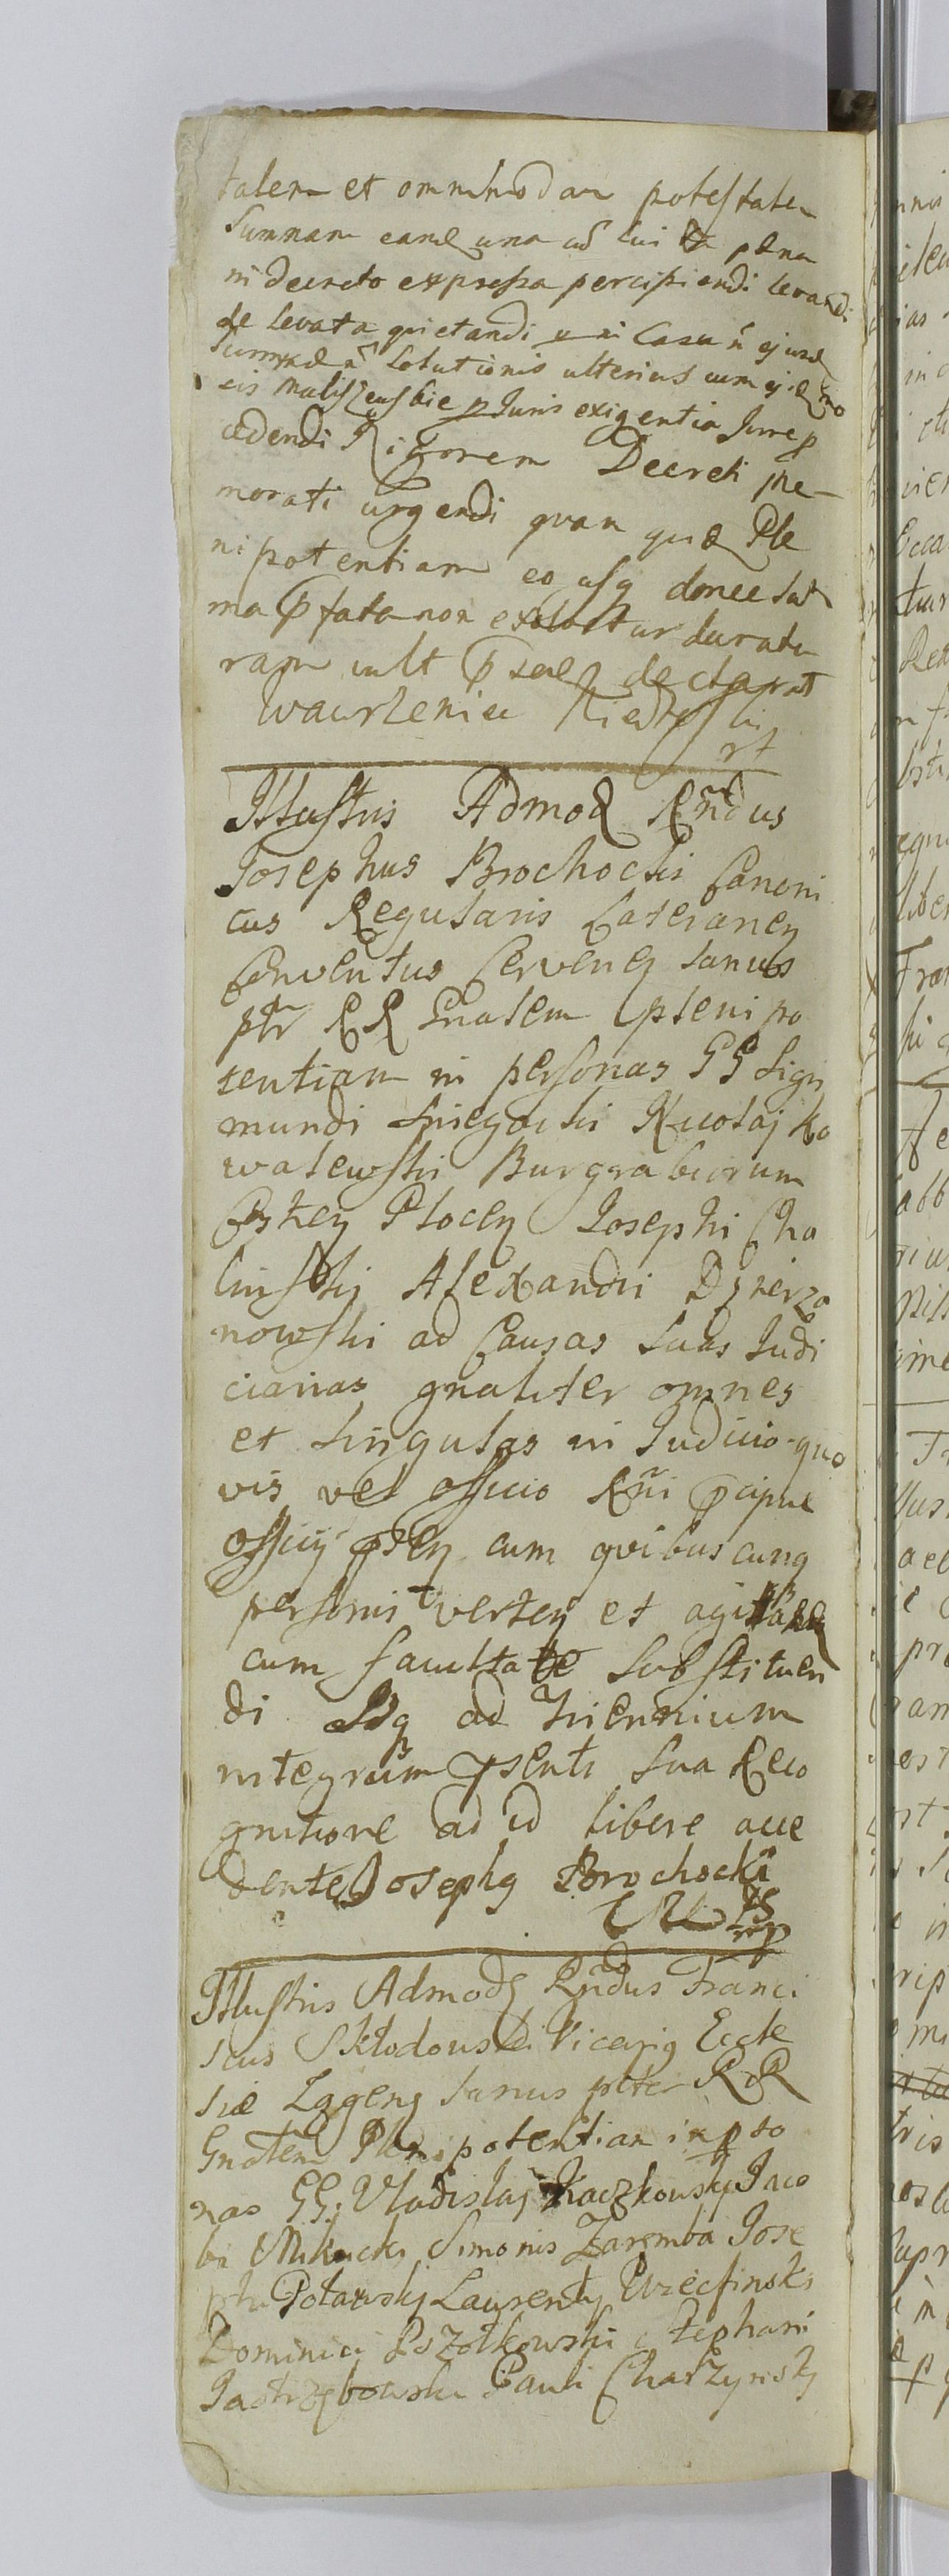 talem et omnimodam potestatem
Summam eand una cū lui pæna
in decreto expressa percipiendi levandi
de levata quietandi in Casu ñ ejusd
summæ ñ Solutionis ulterius cum
eis Maliszewskie p Juris exigentia Jure p
cedendi Rigorem Decreti me-
morati urgendi quam quid Ple
nipotentiam eo usq donec Sum
ma pfata non exsolvetur duratu
ram vult declarat

Illustris Admod Rñdus
Josephus Brochocki Canoni
cus Regularis Lateraneñ
Conventus Cerveneñ Sanus
ptr RR Gnalem plenipo
tentiam in personas GG Sigis
mundi Sniegocki Nicolaj Ko
walewski Burgrabiorum
Cstreñ Ploceñ Josephi Cho
linski Alexandri Dzierza
nowski ad Causas Suas Judi
ciarias gnaliter omnes
et Singulas in Judicio quo
vis vel officio Rñi pcipue
officij pseñ cum quibus cunq
personis verteñ et agitañ
cum facultate Substituen
di Idq ad Triennium
integrum psenti Sua Reco
gnitione ad id libere acce
dente Josephg Brochocki

Illustris Admod Rñdus Franci
scus Skłodowski Vicarig Eccle
siæ Lągeng Sanus ptter RR
Gnalem Plenipotentiam in pso
nas GG: Vladislaj Kaczkowskj Jaco
bi Mikucki Simonis Zaremba Jose
phi Potawskj Laurentij Wrecsinski
Dominici Pszolkowski Stephani
Jastrzębowski Pauli Charzynskj